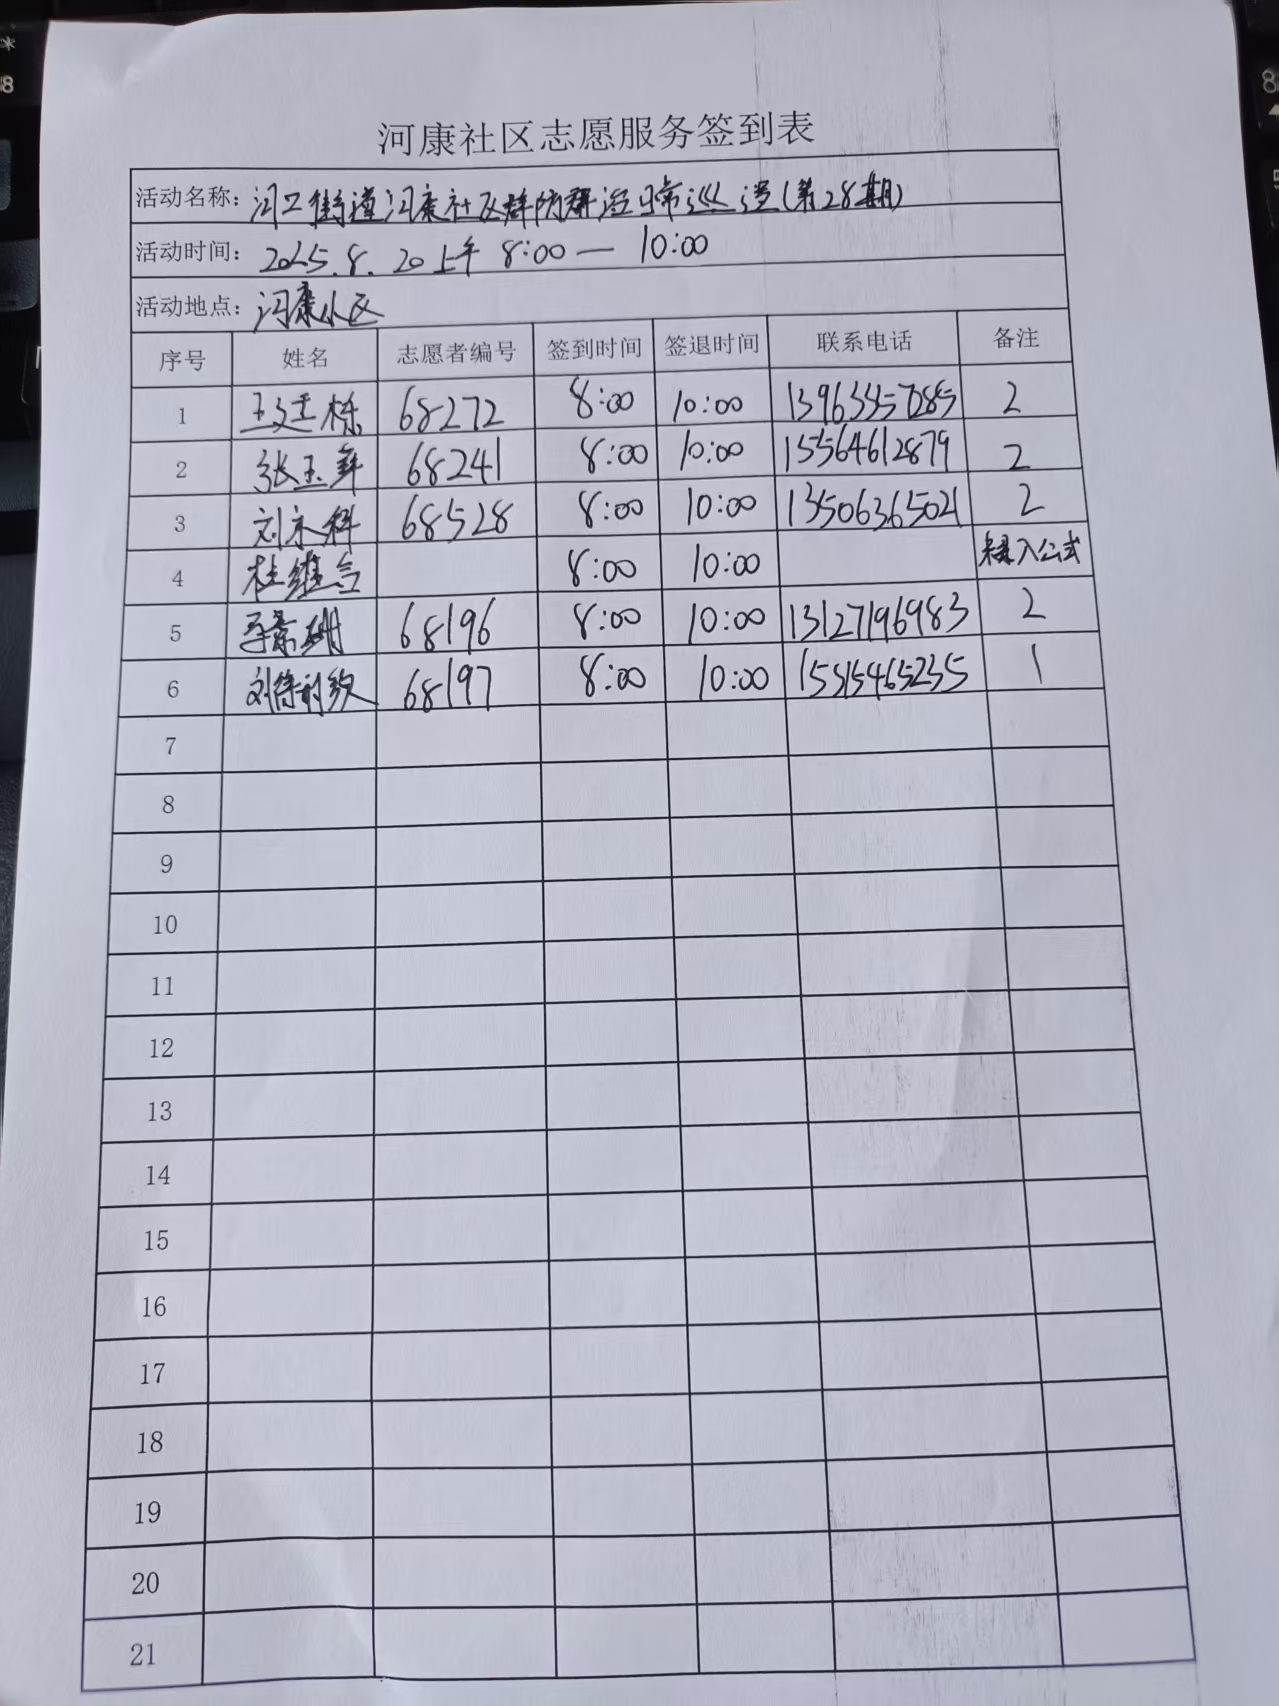 河康社区志愿服务签到表
活动名称: 河口街道河康社区群防群治日常巡逻(第28期)
活动时间: 2025.8.20上午 8:00 — 10:00
活动地点: 河康小区
序号 姓名 志愿者编号 签到时间 签退时间 联系电话 备注
1 68272 8:00 10:00 13963457285 2
2 张玉 68241 8:00 10:00 15564612879 2
3 刘永科 68528 8:00 10:00 13506365021 2
4 杜继 8:00 10:00 入公式
5 68196 8:00 10:00 13127196983 2
6 刘 68197 8:00 10:00 15315465235 1
7
8
9
10
11
12
13
14
15
16
17
18
19
20
21